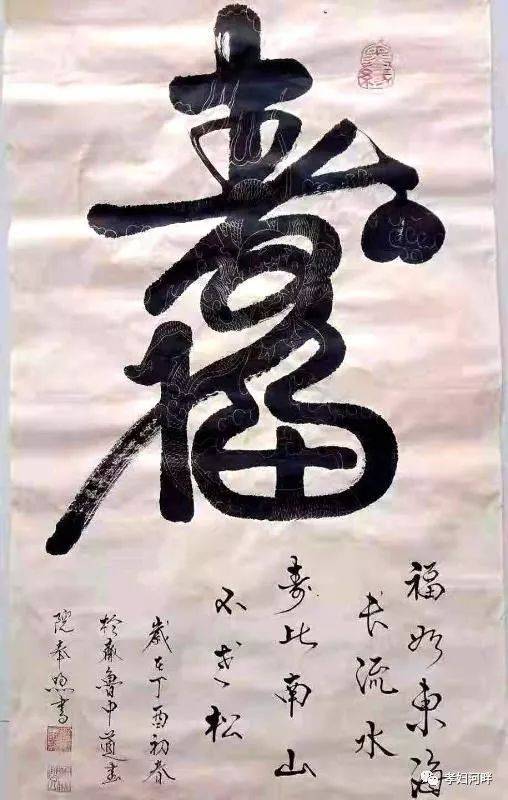 寿福
福如東海
长流水
寿比南山
不老松
歲在丁酉初春
於齊魯中道書
院奉書
孝妇河畔